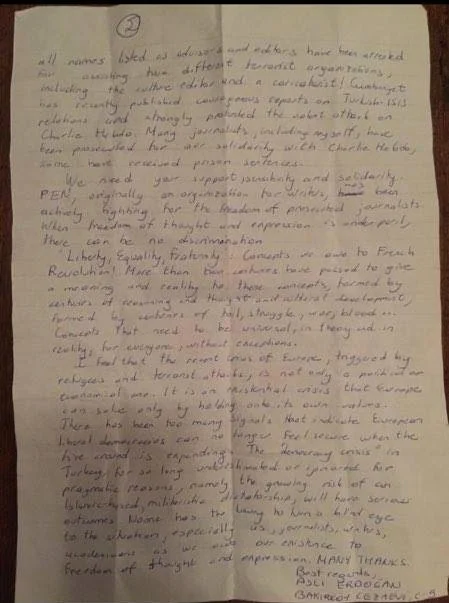 2
all names listed as advisors and editors have been arrested
for assisting two different terrorist organizations,
including the culture editor and a caricaturist! Cumhuriyet
has recently published courageous reports on Turkish-ISIS
relations and strongly protested the attack on
Charlie Hebdo. Many journalists, including myself, have
been prosecuted for our solidarity with Charlie Hebdo,
some have received prison sentences.
We need your support, sensitivity and solidarity.
PEN, originally an organization for writers, has been
actively fighting for the freedom of prosecuted journalists.
When freedom of thought and expression is under peril,
there can be no discrimination
"Liberty, Equality, Fraternity": Concepts we owe to French
Revolution! More than two centuries have passed to give
a meaning and reality to these concepts, formed by
centuries of reasoning and thought and cultural development,
formed by centuries of toil, struggle, war, blood...
Concepts that need to be universal, in theory and in
reality, for everyone, without exceptions.
I feel that the recent crisis of Europe, triggered by
refugees and terrorist attacks, is not only a political or
economical one. It is an existential crisis that Europe
can solve only by holding onto its own values.
There has been too many signals that indicate European
liberal democracies can no longer feel secure when the
fire around is expanding. The "democracy crisis" in
Turkey, for so long underestimated or ignored for
pragmatic reasons, namely the growing risk of an
Islamic-based, militaristic dictatorship, will have serious
outcomes. Noone has the luxury to turn a blind eye
to the situation, especially us, journalists, writers,
academicians as we owe our existence to
freedom of thought and expression. MANY THANKS.
Best regards,
ASLI ERDOGAN
BAKIRKOY CEZAEVI, C-9